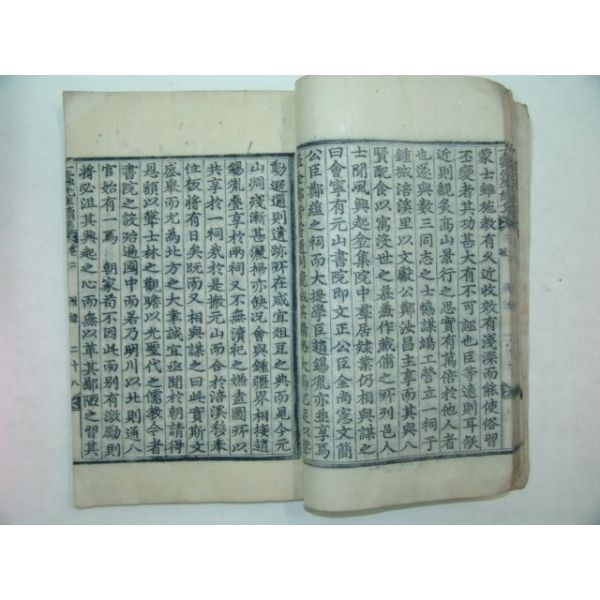 蒙士錐施敎有久近收效有淺深而能使俗習
丕變者其功甚大有不可誣也臣等遠則耳飫
近則觀炙高山景行之思實有萬倍於他人者
也遂與數三同志之士恊謀鳩工營立一祠于
鍾城涪溪里以文獻公鄭汝昌主享而其與八
賢配食以寓沒世之慕盡作藏脩之所列邑人
士聞風興起金集院中羣居肄業仍相與謀之
曰會寧有元山書院即文正公臣金尙憲文簡
公臣鄭蘊之祠而大提學臣趙錫胤亦並享焉
動遊適則遺跡所在咸宜俎豆之典而見今元
山洞殘漸甚灑掃亦缺况會與鍾疆界相接趙
錫胤疊享於兩祠又不無瀆祀之嫌盍圖所以
共享於一祠哉於是撤元山而合於涪溪後奉
位板將有日矣旣而又相與謀之曰此實斯文
盛擧而尤爲北方之大幸誠宜亟聞於朝請得
恩額以聳士林之觀瞻以光聖代之儒敎今者
書院之設殆遍國中而若乃明川以北則通八
官始有一焉 朝家苟不因此而別有激勵則
將必沮其興起之心而無以革其鄙陋之習其
先生 卷二 附錄 二十八